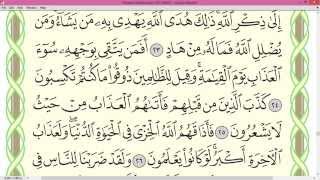 إِلَىٰ ذِكْرِ ٱللَّهِ ذَٰلِكَ هُدَى ٱللَّهِ يَهْدِى بِهِۦ مَن يَشَآءُ وَمَن
يُضْلِلِ ٱللَّهُ فَمَا لَهُۥ مِنْ هَادٍ ٢٣ أَفَمَن يَتَّقِى بِوَجْهِهِۦ سُوٓءَ
ٱلْعَذَابِ يَوْمَ ٱلْقِيَٰمَةِ وَقِيلَ لِلظَّٰلِمِينَ ذُوقُوا۟ مَا كُنتُمْ تَكْسِبُونَ
٢٤ كَذَّبَ ٱلَّذِينَ مِن قَبْلِهِمْ فَأَتَىٰهُمُ ٱلْعَذَابُ مِنْ حَيْثُ
لَا يَشْعُرُونَ ٢٥ فَأَذَاقَهُمُ ٱللَّهُ ٱلْخِزْىَ فِى ٱلْحَيَوٰةِ ٱلدُّنْيَا وَلَعَذَابُ
ٱلْءَاخِرَةِ أَكْبَرُ لَوْ كَانُوا۟ يَعْلَمُونَ ٢٦ وَلَقَدْ ضَرَبْنَا لِلنَّاسِ فِى